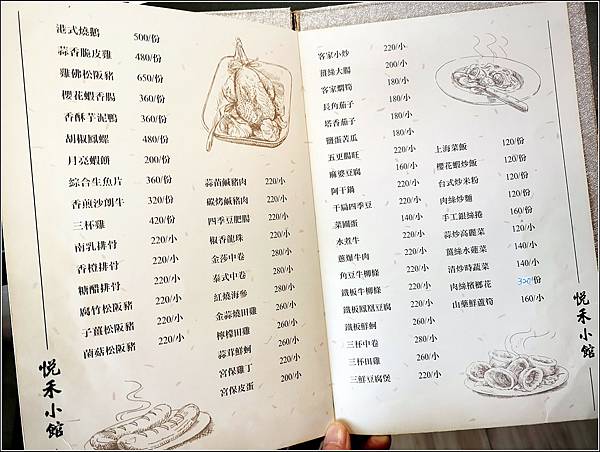 港式燒鵝 500/份
蒜香脆皮雞 480/份
雞佛松阪豬 650/份
櫻花蝦香腸 360/份
香酥芋泥鴨 360/份
胡椒鳳螺 480/份
月亮蝦餅 200/份
綜合生魚片 360/份
香煎沙朗牛 320/份
三杯雞 420/份
南乳排骨 220/小
香橙排骨 220/小
糖醋排骨 220/小
腐竹松阪豬 220/小
子薑松阪豬 220/小
菌菇松阪豬 220/小
蒜苗鹹豬肉 220/小
碳烤鹹豬肉 220/小
四季豆肥腸 220/小
椒香龍珠 220/小
金莎中卷 280/小
泰式中卷 280/小
紅燒海參 280/小
金蒜燒田雞 260/小
檸檬田雞 260/小
蒜茸鮮蚵 260/小
宮保雞丁 220/小
宮保皮蛋 200/小
悅禾小館
客家小炒 220/小
薑絲大腸 200/小
客家燜筍 180/小
長角茄子 180/小
塔香茄子 180/小
鹽蛋苦瓜 180/小
五更腸旺 220/小
麻婆豆腐 160/小
阿干鍋 220/小
干扁四季豆 220/小
菜圃蛋 140/小
水煮牛 220/小
蔥爆牛肉 220/小
角豆牛柳條 220/小
鐵板牛柳條 220/小
鐵板鳳凰豆腐 220/小
鐵板鮮蚵 260/小
三杯中卷 280/小
三杯田雞 260/小
三鮮豆腐煲 220/小
上海菜飯 120/份
櫻花蝦炒飯 120/份
台式炒米粉 120/份
肉絲炒麵 120/份
手工銀絲捲 160/份
蒜炒高麗菜 120/小
薑絲水蓮菜 140/小
清炒時蔬菜 140/小
肉絲檳榔花 320/份
山藥鮮蘆筍 160/小
悅禾小館